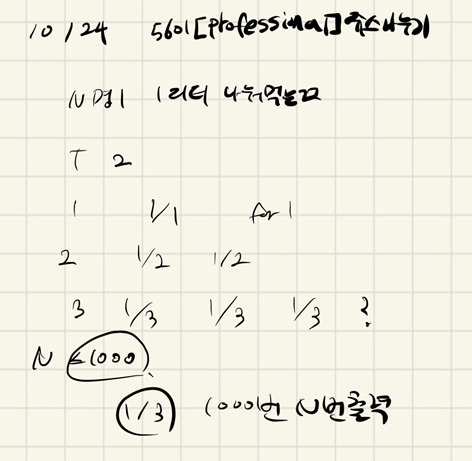 10/24 5601[Professional] 쥬스나누기
N명이 1리터 나눠먹는고
T 2
1 1/1 for 1
2 1/2 1/2
3 1/3 1/3 1/3 ?
N ≤1000
1/3 1000번 N번출력